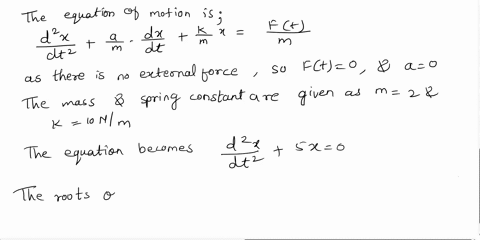 The equation of motion is;
d²x/dt² + a/m · dx/dt + K/m x = F(t)/m
as there is no external force, so F(t)=0, & a=0
The mass & spring constant are given as m = 2 &
K = 10 N/m
The equation becomes d²x/dt² + 5x=0
The roots o